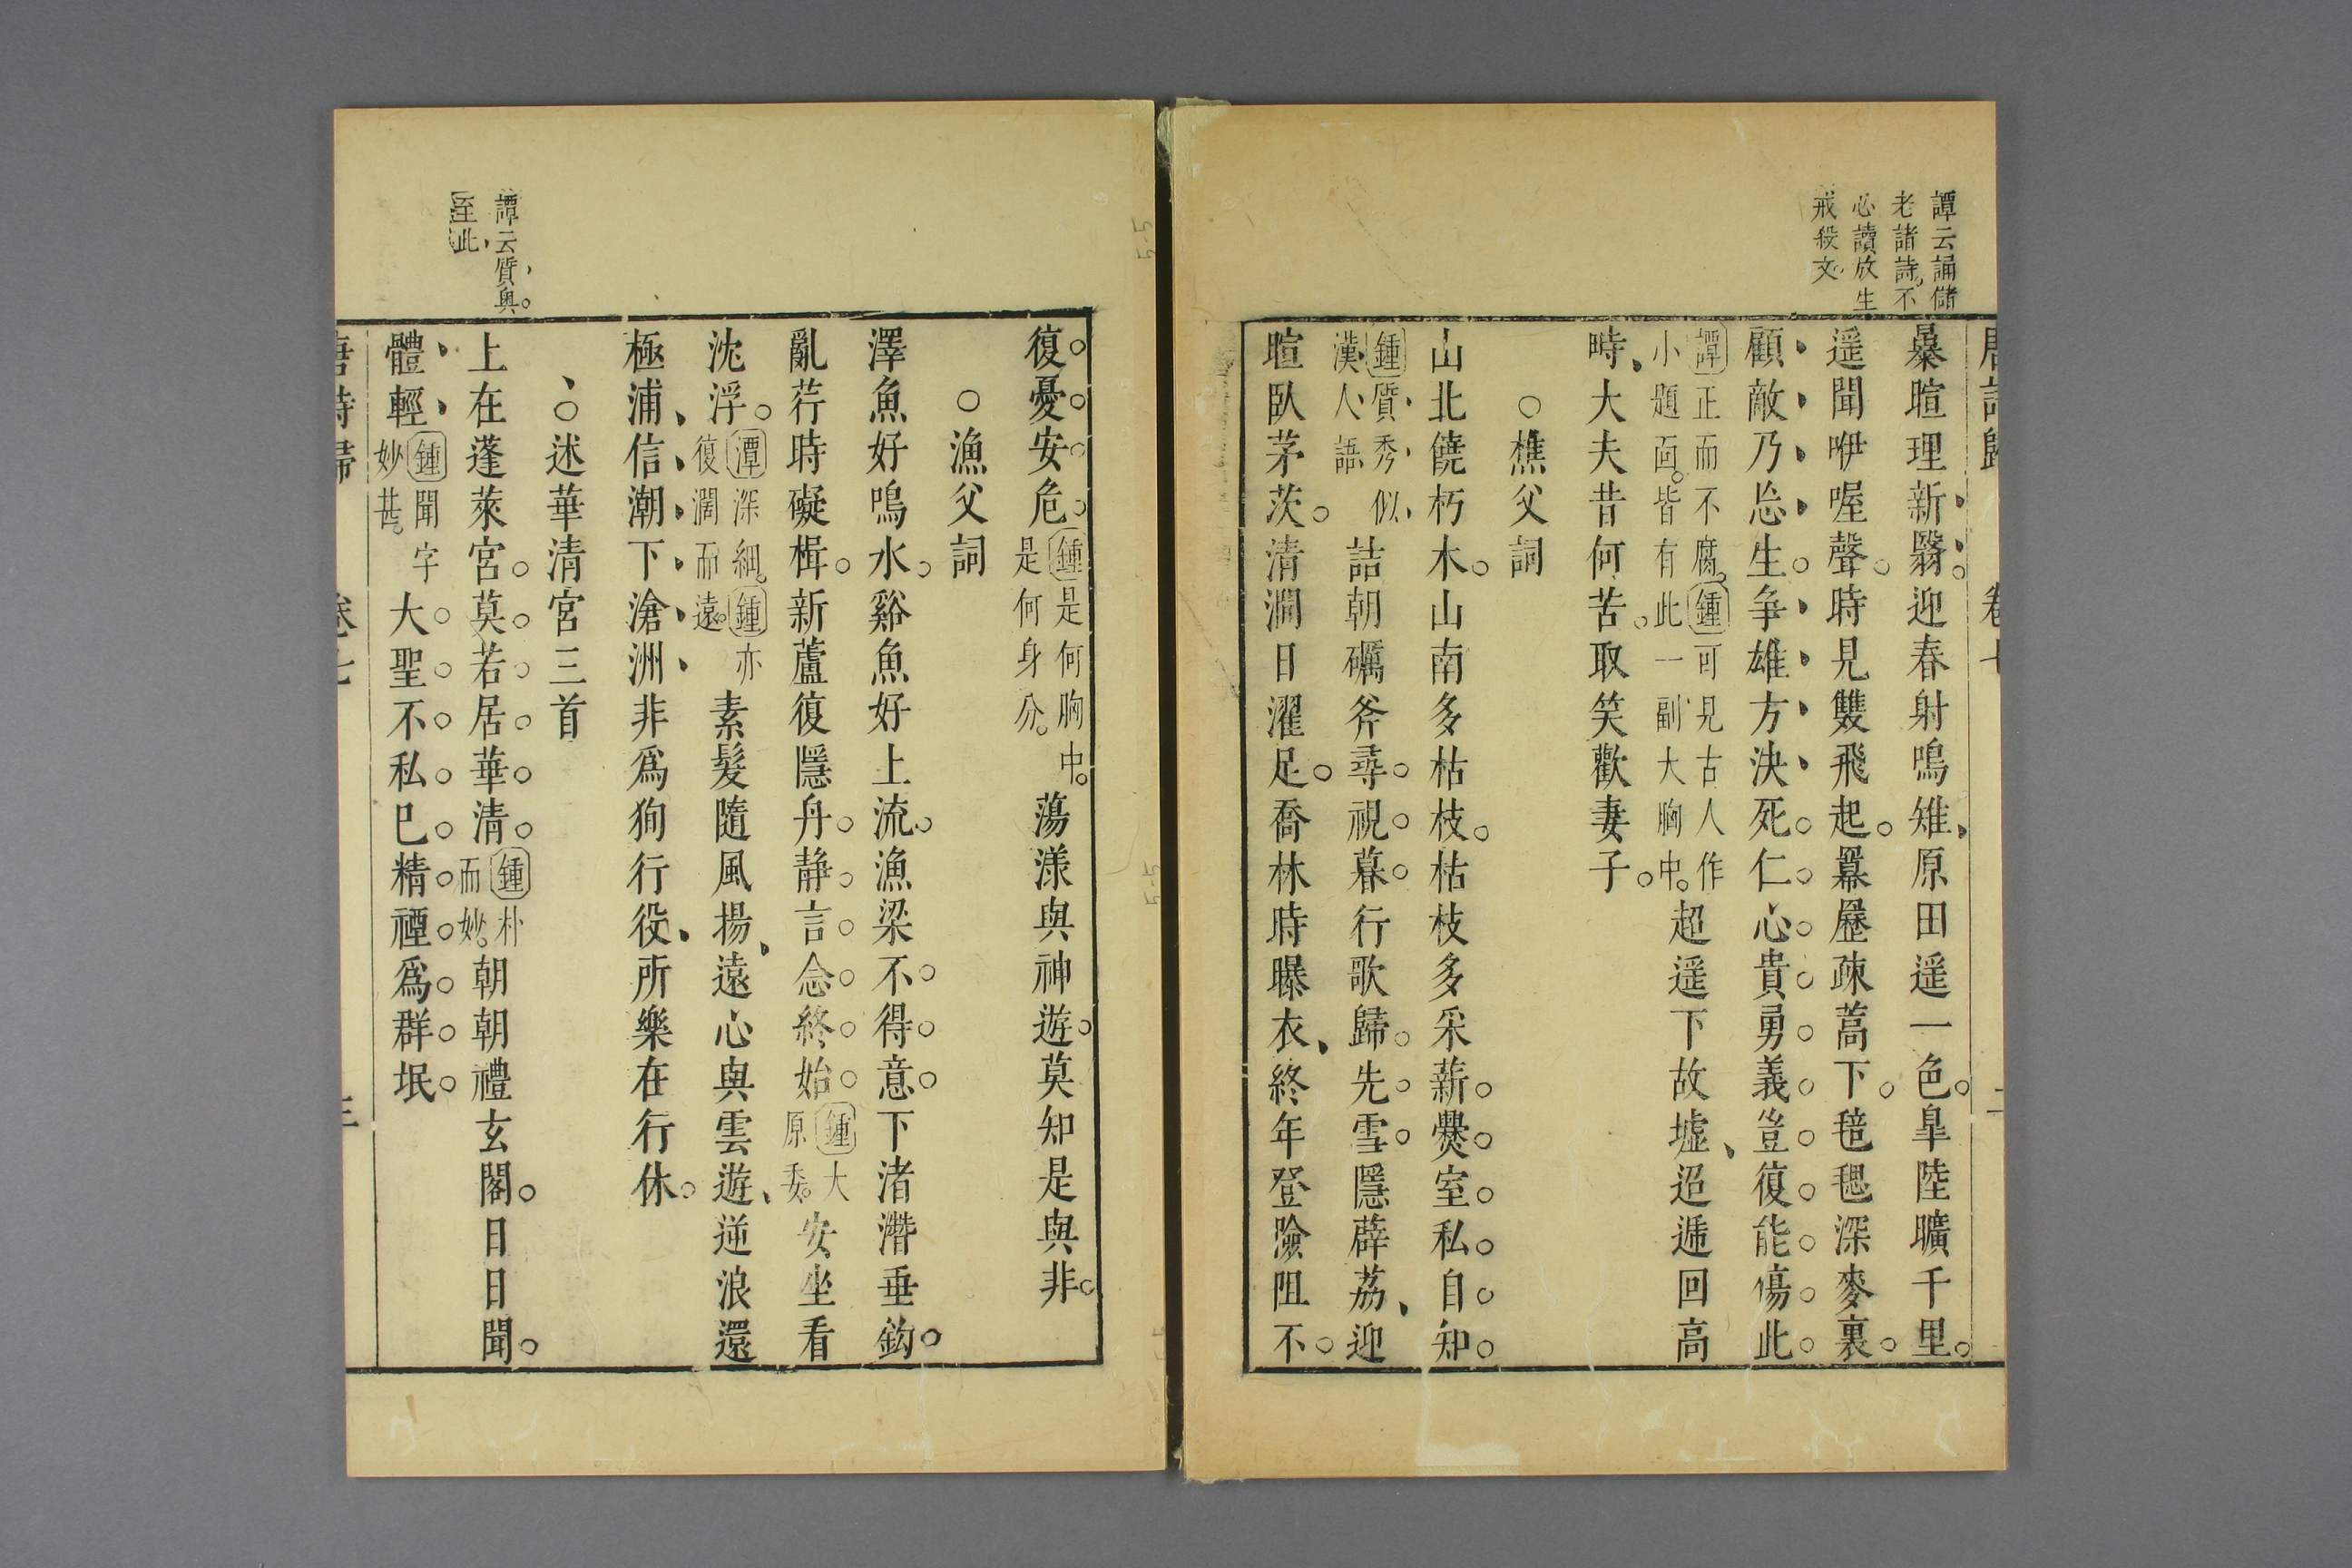 譚云誦儲
老諸詩不
心讀放生
戒殺文
唐詩歸
卷七
二
暴暄理新翳迎春射鳴雉原田遥一色皐陸曠千里
遥聞咿喔聲時見雙飛起羃歷疎蒿下毰毸深麥裏
顧敵乃忘生争雄方決死仁心貴勇義豈復能傷此
譚正而不腐鍾可見古人作
小題面皆有此一副大胸中
超遥下故墟迢遞回高
時大夫昔何苦取笑歡妻子
○樵父詞
山北饒朽木山南多枯枝枯枝多采薪爨室私自知
鍾質秀似
漢人語
詰朝礪斧尋視暮行歌歸先雪隱薜荔迎
暄臥茅茨清澗日濯足喬林時曝衣終年登險阻不
復憂安危
鍾是何胸中
是何身分
蕩漾與神遊莫知是與非
○漁父詞
澤魚好鳴水谿魚好上流漁梁不得意下渚潛垂鈎
亂荇時礙楫新蘆復隱舟静言念終始
鍾大
原委
安坐看
沈浮
潭深細鍾亦
復濶而遠
素髮隨風揚遠心與雲遊逆浪還
極浦信潮下滄洲非爲狥行役所樂在行休
○述華清宮三首
譚云質奥
至此
上在蓬萊宮莫若居華清
鍾朴
而妙
朝朝禮玄閣日日聞
體輕
鍾聞字
妙甚
大聖不私已精禋爲群氓
唐詩歸
卷七
三